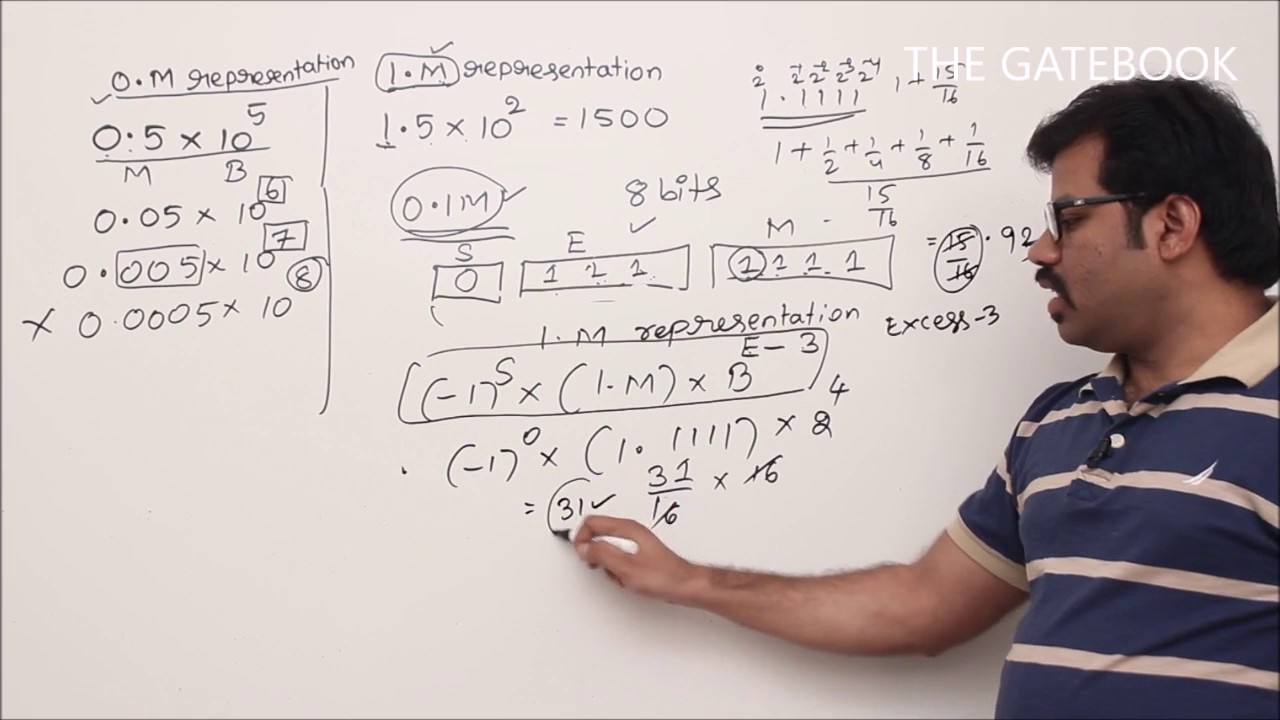 THE GATEBOOK
0.M representation
0.5 × 10^5
M B
0.05 × 10^6
0.005 × 10^7
× 0.0005 × 10^8
1.M representation
1.5 × 10^2 = 1500
0.1M
8 bits
S E M
0 1 1 1 1 1 1 1
1.M representation
Excess-3
(-1)^S × (1.M) × B^E-3
(-1)^0 × (1.1111) × 2^4
= 31 31/16 × 16
2^0 2^-1 2^-2 2^-3 2^-4
1.1111 1 + 15/16
1 + 1/2 + 1/4 + 1/8 + 1/16
15/16
= 15/16 .92